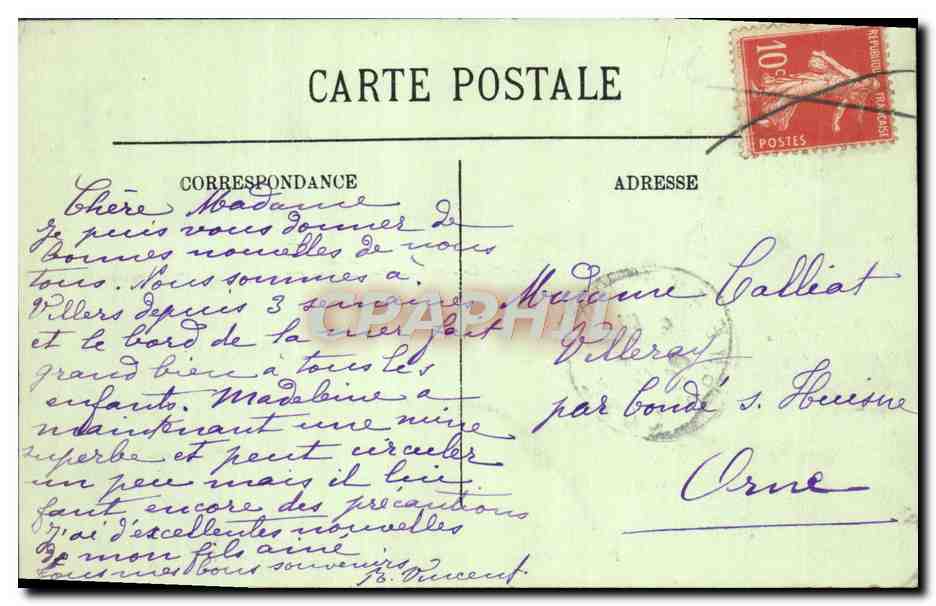 CARTE POSTALE
REPUBLIQUE FRANÇAISE
10c
POSTES
CORRESPONDANCE
Chère Madame
Je puis vous donner de
bonnes nouvelles de nous
tous. Nous sommes à
Villers depuis 3 semaines
et le bord de la mer fait
grand bien à tous les
enfants. Madeleine a
maintenant une mine
superbe et peut circuler
un peu mais il lui
faut encore des précautions
J'ai d'excellentes nouvelles
de mon fils aîné
tous mes bons souvenirs
B. Vincent
ADRESSE
Madame Calliat
Villeray
par Condé s. Huisne
Orne
CPAPHIL